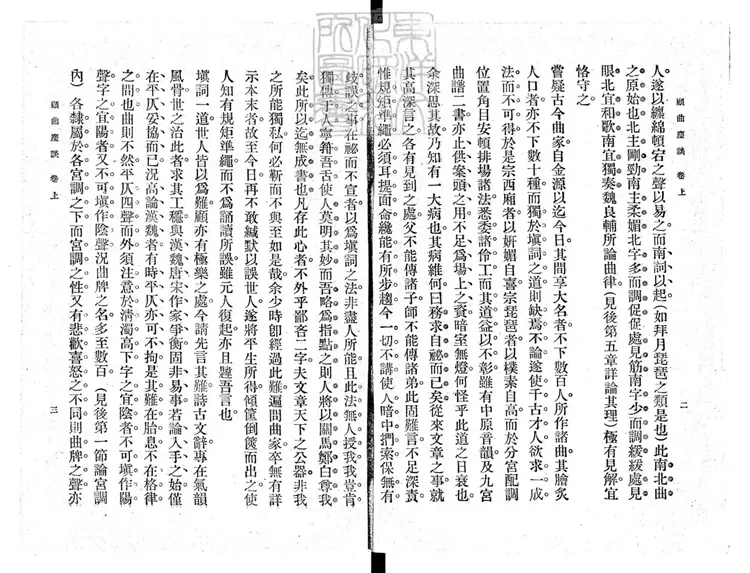 顧曲塵談 卷上
二
人遂以纏綿頓宕之聲以易之而南詞以起(如拜月琵琶之類是也)此南北曲
之原始也北主剛勁南主柔媚北字多而調促促處見筋南字少而調緩緩處見
眼北宜和歌南宜獨奏魏良輔所論曲律(見後第五章詳論其理)極有見解宜
恪守之
嘗疑古今曲家自金源以迄今日其間享大名者不下數百人所作諸曲其膾炙
人口者亦不下數十種而獨於塡詞之道則缺焉不論遂使千古才人欲求一成
法而不可得於是宗西廂者以姸媚自喜宗琵琶者以樸素自高而於分宮配調
位置角目安頓排場諸法悉委諸伶工而其道益以不彰雖有中原音韻及九宮
曲譜二書亦止供案頭之用不足爲場上之資暗室無燈何怪乎此道之日衰也
余深思其故乃知有一大病也其病維何曰務求自祕而已矣從來文章之事就
其高深言之各有見到之處父不能傳諸子師不能傳諸弟此固難言不足深責
惟規矩準繩必須耳提面命纔能有所步趨今一切不講使人暗中捫索保無有
歧誤之事在祕而不宣者以爲塡詞之法非盡人所能且此法無人授我我豈肯
獨傳于人寧箝吾舌使人莫明其妙而吾略爲指點之則人將以關馬鄭白尊我
矣此所以迄無成書也凡存此心者不外乎鄙吝二字夫文章天下之公器非我
之所能獨私何必靳而不與至如是哉余少時卽經過此難遍問曲家卒無有詳
示本末者故至今日再不敢緘默以誤世人遂將平生所得傾筐倒篋而出之使
人知有規矩準繩而不爲誦讀所誤雖元人復起亦且韙吾言也
塡詞一道世人皆以爲難顧亦有極樂之處今請先言其難詩古文辭專在氣韻
風骨世之治此者求其工穩與漢魏唐宋作家爭衡固非易事若論入手之始僅
在平仄妥協而已況高論漢魏者有時平仄亦可不拘是其難在胎息不在格律
之間也曲則不然平仄四聲而外須注意於淸濁高下字之宜陰者不可塡作陽
聲字之宜陽者又不可塡作陰聲況曲牌之名多至數百(見後第一節論宮調
內)各隸屬於各宮調之下而宮調之性又有悲歡喜怒之不同則曲牌之聲亦
顧曲塵談 卷上
三